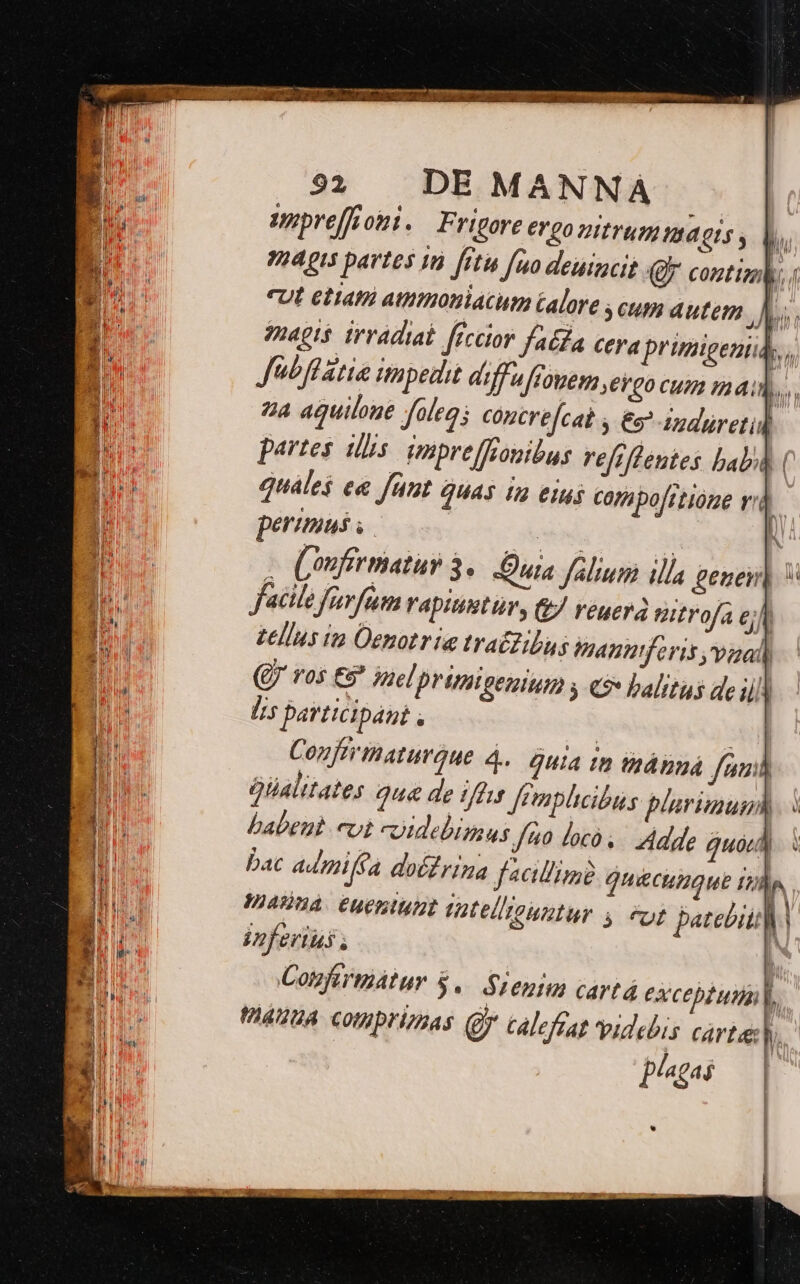 92 DE MANNA
impreſſioni. Frigore ergo nitrum magis,
magis partes in ſitu ſuo deuincit & contin
vt etiam ammoniacum calore, cum autem
magis irradiat ſiccior facta cera primigeni
ſubſtātiæ impedit diffuſionem, ergo cum ma
na aquilone ſoleq; concreſcat, & induret
partes illis impreſſionibus reſiſtentes hab
quales eæ ſunt quas in eius compoſitione
perimus.
Confirmatur 3. Quia ſalium illa gener
facile ſurſum rapiuntur, & reuerà nitroſa eſ
tellus in Oenotriæ tractibus manniferis, vna
& ros & mel primigenium, & halitus de il
lis participant.
Confirmaturque 4. quia in mánná ſun
qualitates quæ de iſtis ſimplicibus plurimum
habent vt videbimus ſuo loco. Adde quod
hac admiſſa doctrina facillimè quæcunque in
manná eueniunt intelliguntur, vt patebit
inferius.
Confirmatur 5. Si enim cartá exceptum
mánná comprimas & calefiat videbis cartæ
plagas